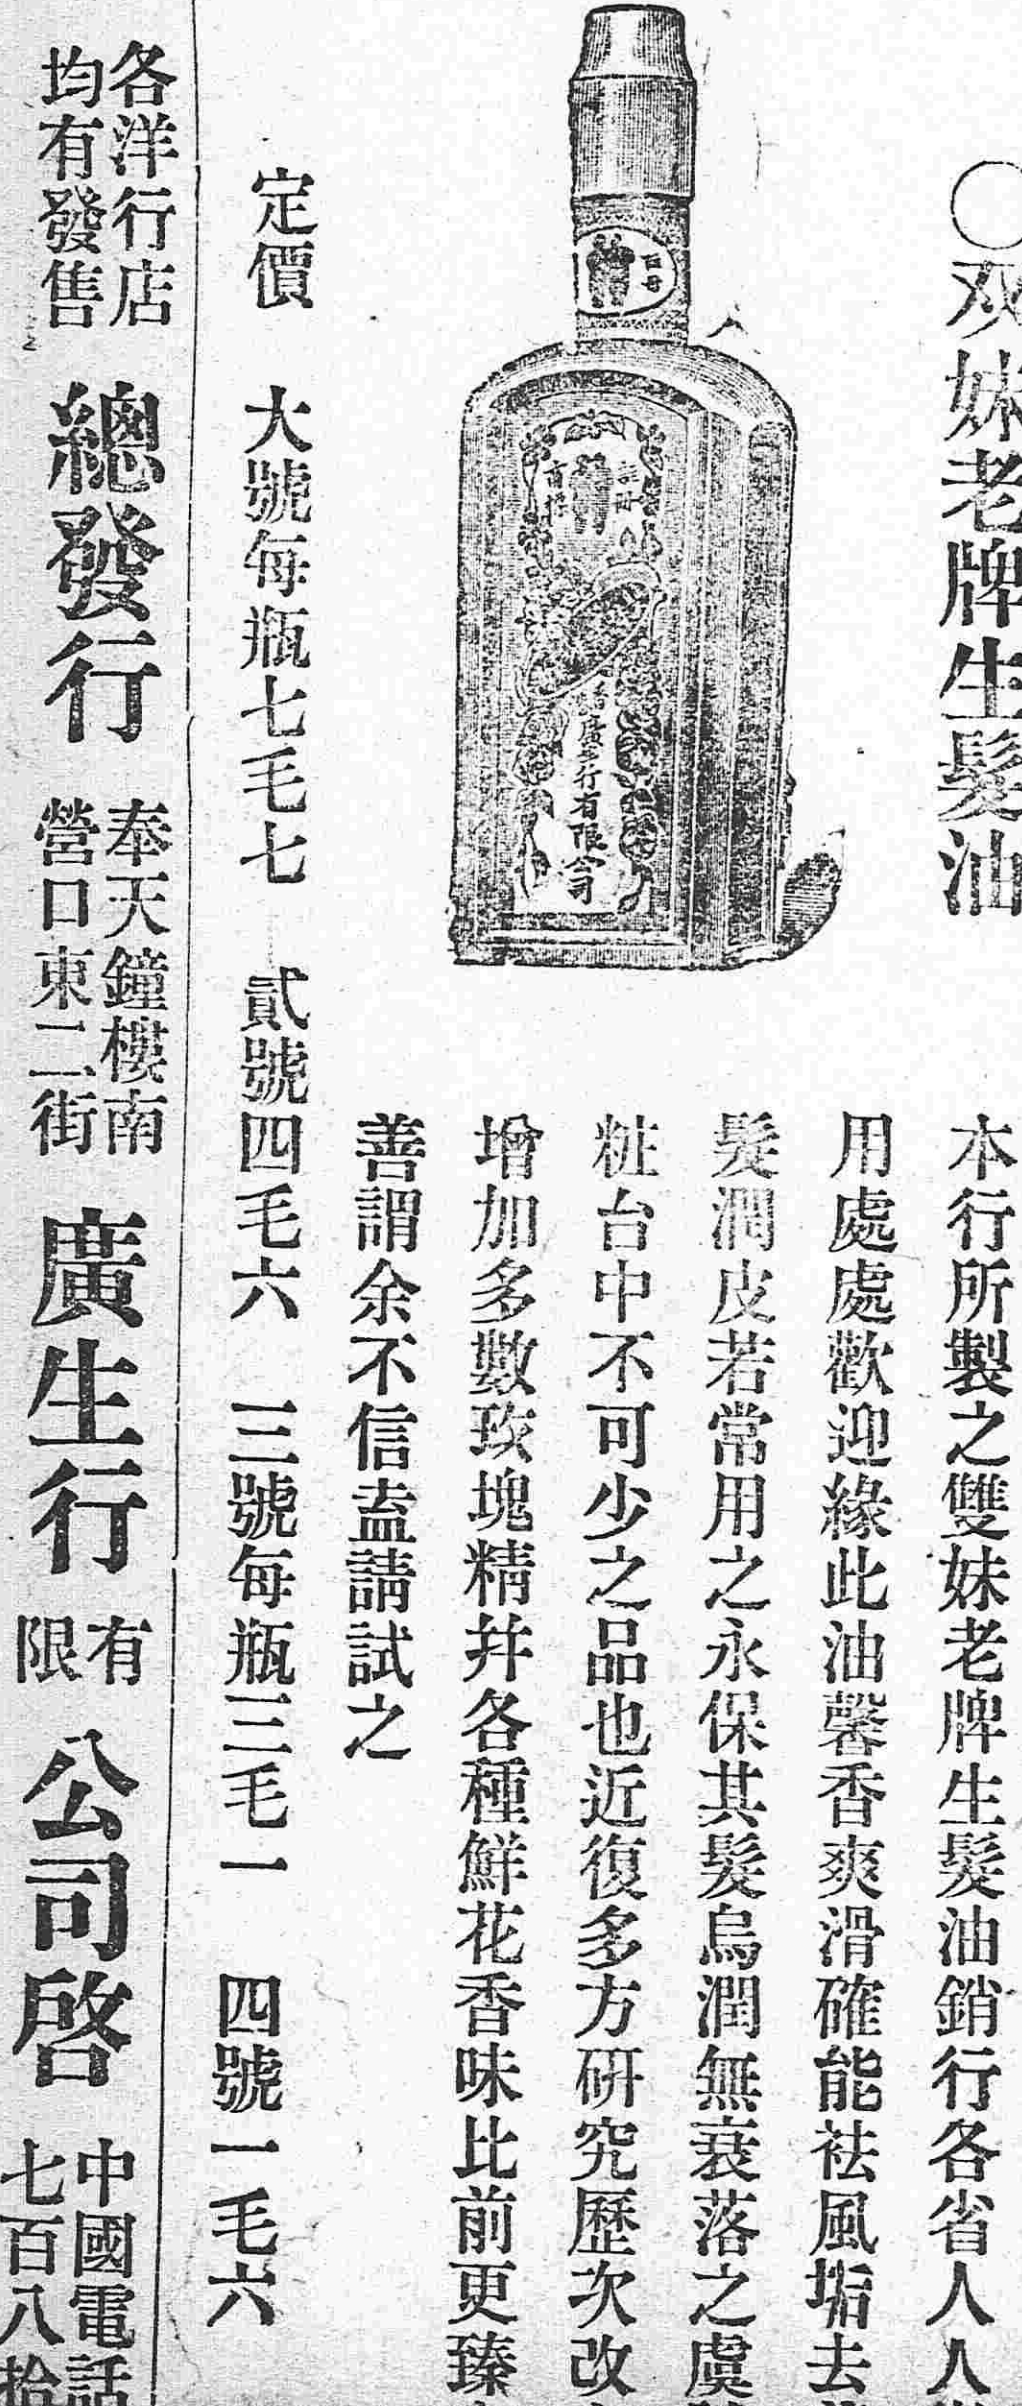 〇双妹老牌生髮油
本行所製之雙妹老牌生髮油銷行各省人人
用處處歡迎緣此油馨香爽滑確能袪風垢去
髮潤皮若常用之永保其髮烏潤無衰落之虞
粧台中不可少之品也近復多方研究歷次改
增加多數玫瑰精并各種鮮花香味比前更臻
善謂余不信盍請試之
廣生行有限公司
定價 大號每瓶七毛七 貳號四毛六 三號每瓶三毛一 四號一毛六
各洋行店
均有發售
總發行
奉天鐘樓南
營口東二街
廣生行
有
限
公司啓
中國電話
七百八拾